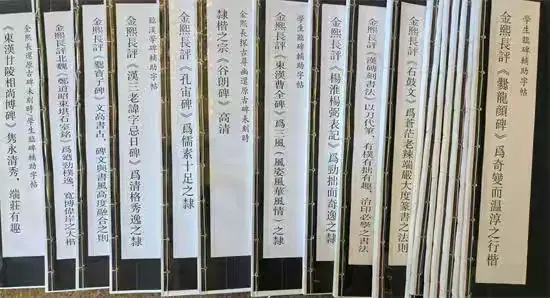 學生臨碑輔助字帖
金熙長評《爨龍顔碑》爲奇變而温淳之行楷
金熙長評《石鼓文》爲蒼茫老辣端嚴大度篆書之法則
金熙長評《漢磚刻書法》以刀代筆，有樸有拙有趣，治印必學之書法
學生臨碑輔助字帖
金熙長評《楊淮楊弼表記》爲勁拙而奇逸之隸
學生臨碑輔助字帖
金熙長評《東漢曹全碑》爲三風（風姿風華風情）之隸
金熙長探古尋幽還原古碑未刻時
隸楷之宗《谷朗碑》高清
金熙長評《孔宙碑》爲儒素十足之隸
臨漢學碑輔助字帖
金熙長評《漢三老諱字忌日碑》爲清格秀逸之隸
金熙長評《爨寳子碑》文高書古，碑文與書風高度融合之則
金熙長評北魏《鄭道昭東堪石室銘》爲遒勁樸逸，寬博偉岸之大楷
金熙長還原古碑未刻時學生臨碑輔助字帖
《東漢甘陵相尚博碑》雋永清秀，端莊有趣